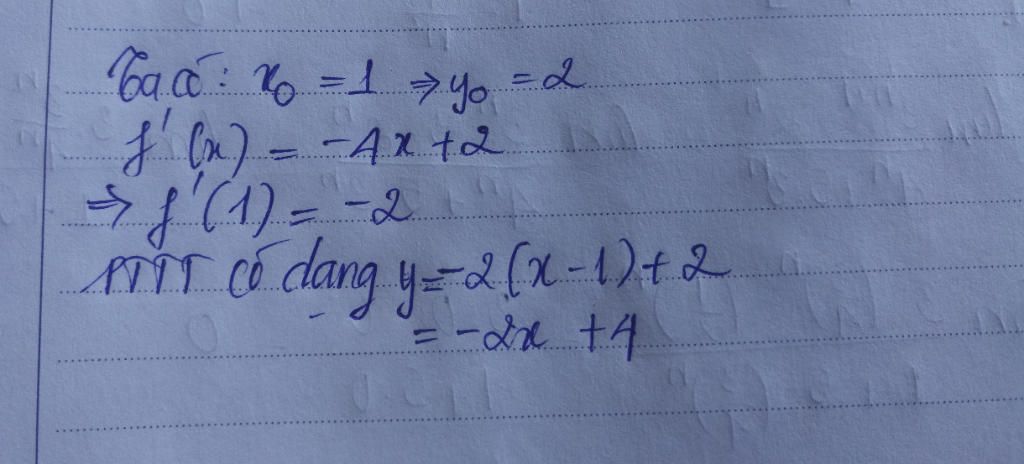 Ta có: x₀ = 1 ⇒ y₀ = 2
f'(x) = -4x + 2
⇒ f'(1) = -2
PTTT có dạng y = -2(x - 1) + 2
= -2x + 4